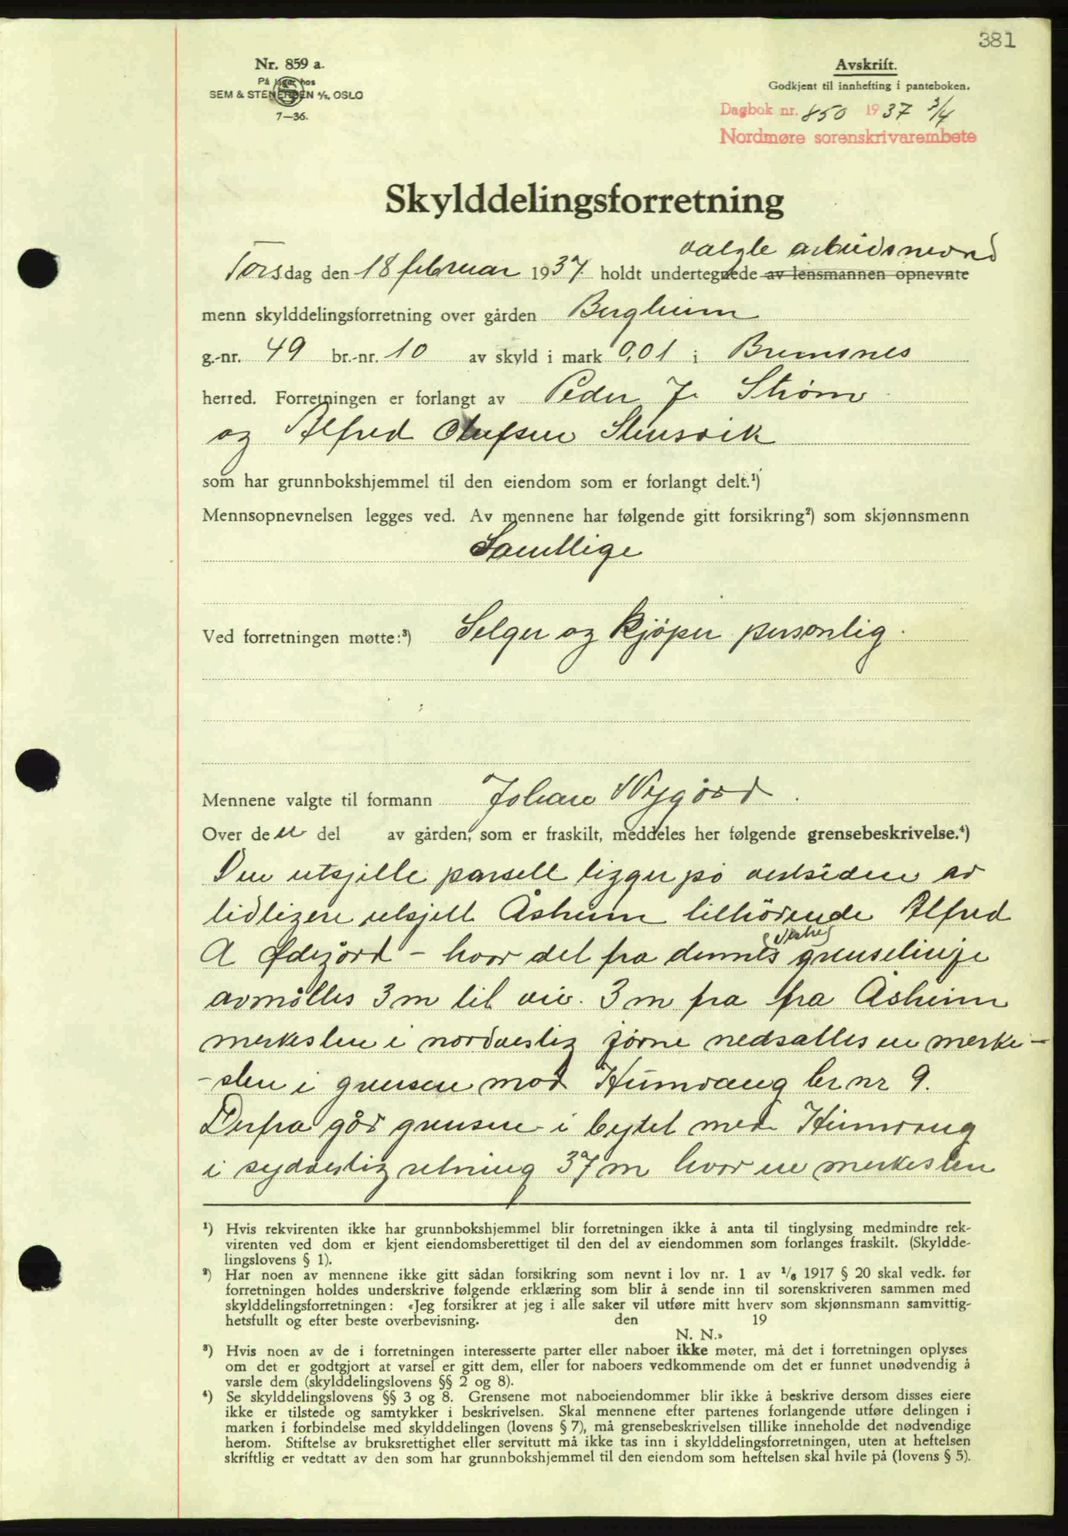 381
Nr. 859 a.
På lager hos
SEM & STENERSEN A/S, OSLO
7—36.
Avskrift.
Godkjent til innhefting i panteboken.
Dagbok nr. 850 1937 3/4
Nordmøre sorenskrivarembete
Skylddelingsforretning
valgte arbeidsnevnd
Torsdag den 18 februar 1937 holdt undertegnede av lensmannen opnevnte
menn skylddelingsforretning over gården Bergheim
g.-nr. 49 br.-nr. 10 av skyld i mark 0,01 i Bremsnes
herred. Forretningen er forlangt av Peder J. Strøm
og Alfred Olufsen Stensvik
som har grunnbokshjemmel til den eiendom som er forlangt delt.¹)
Mennsopnevnelsen legges ved. Av mennene har følgende gitt forsikring²) som skjønnsmenn
Samtlige
Ved forretningen møtte:³) Selger og kjøper personlig.
Mennene valgte til formann Johan Nygård.
Over den del av gården, som er fraskilt, meddeles her følgende grensebeskrivelse.⁴)
Den utsjille parsell ligger på vestsiden av
tidligere utsjilt Åsheim tilhørende Alfred
A Ødegård - hvor det fra dennes vestre grenselinje
avmåltes 3 m til vei. 3 m fra fra Åsheim
merkesten i nordvestlig jørne nedsattes en merke-
-sten i grensen mod Humvang br nr 9.
Derfra går grensen i bytet med Humvang
i sydvestlig retning 37 m hvor en merkesten
¹) Hvis rekvirenten ikke har grunnbokshjemmel blir forretningen ikke å anta til tinglysing medmindre rek-
virenten ved dom er kjent eiendomsberettiget til den del av eiendommen som forlanges fraskilt. (Skyldde-
lingslovens § 1).
²) Har noen av mennene ikke gitt sådan forsikring som nevnt i lov nr. 1 av 1/6 1917 § 20 skal vedk. før
forretningen holdes underskrive følgende erklæring som blir å sende inn til sorenskriveren sammen med
skylddelingsforretningen: «Jeg forsikrer at jeg i alle saker vil utføre mitt hverv som skjønnsmann samvittig-
hetsfullt og efter beste overbevisning. den 19
N. N.»
³) Hvis noen av de i forretningen interesserte parter eller naboer ikke møter, må det i forretningen oplyses
om det er godtgjort at varsel er gitt dem, eller for naboers vedkommende om det er funnet unødvendig å
varsle dem (skylddelingslovens §§ 2 og 8).
⁴) Se skylddelingslovens §§ 3 og 8. Grensene mot naboeiendommer blir ikke å beskrive dersom disses eiere
ikke er tilstede og samtykker i beskrivelsen. Skal mennene efter partenes forlangende utføre delingen i
marken i forbindelse med skylddelingen (lovens § 7), må grensebeskrivelsen tillike inneholde det nødvendige
herom. Stiftelse av bruksrettighet eller servitutt må ikke tas inn i skylddelingsforretningen, uten at heftelsen
skriftlig er vedtatt av den som har grunnbokshjemmel til den eiendom som heftelsen skal hvile på (lovens § 5).